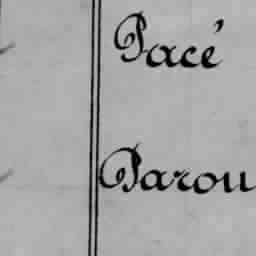 Pacé
Parou